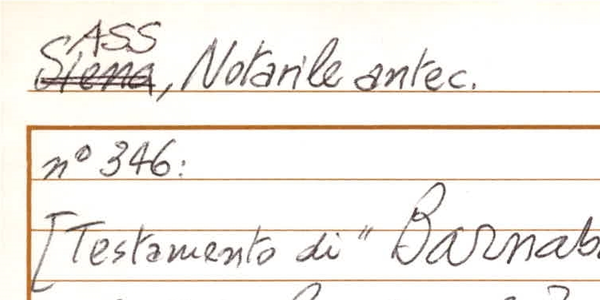 ASS
Siena, Notarile antec.
n° 346:
[Testamento di "Barnab